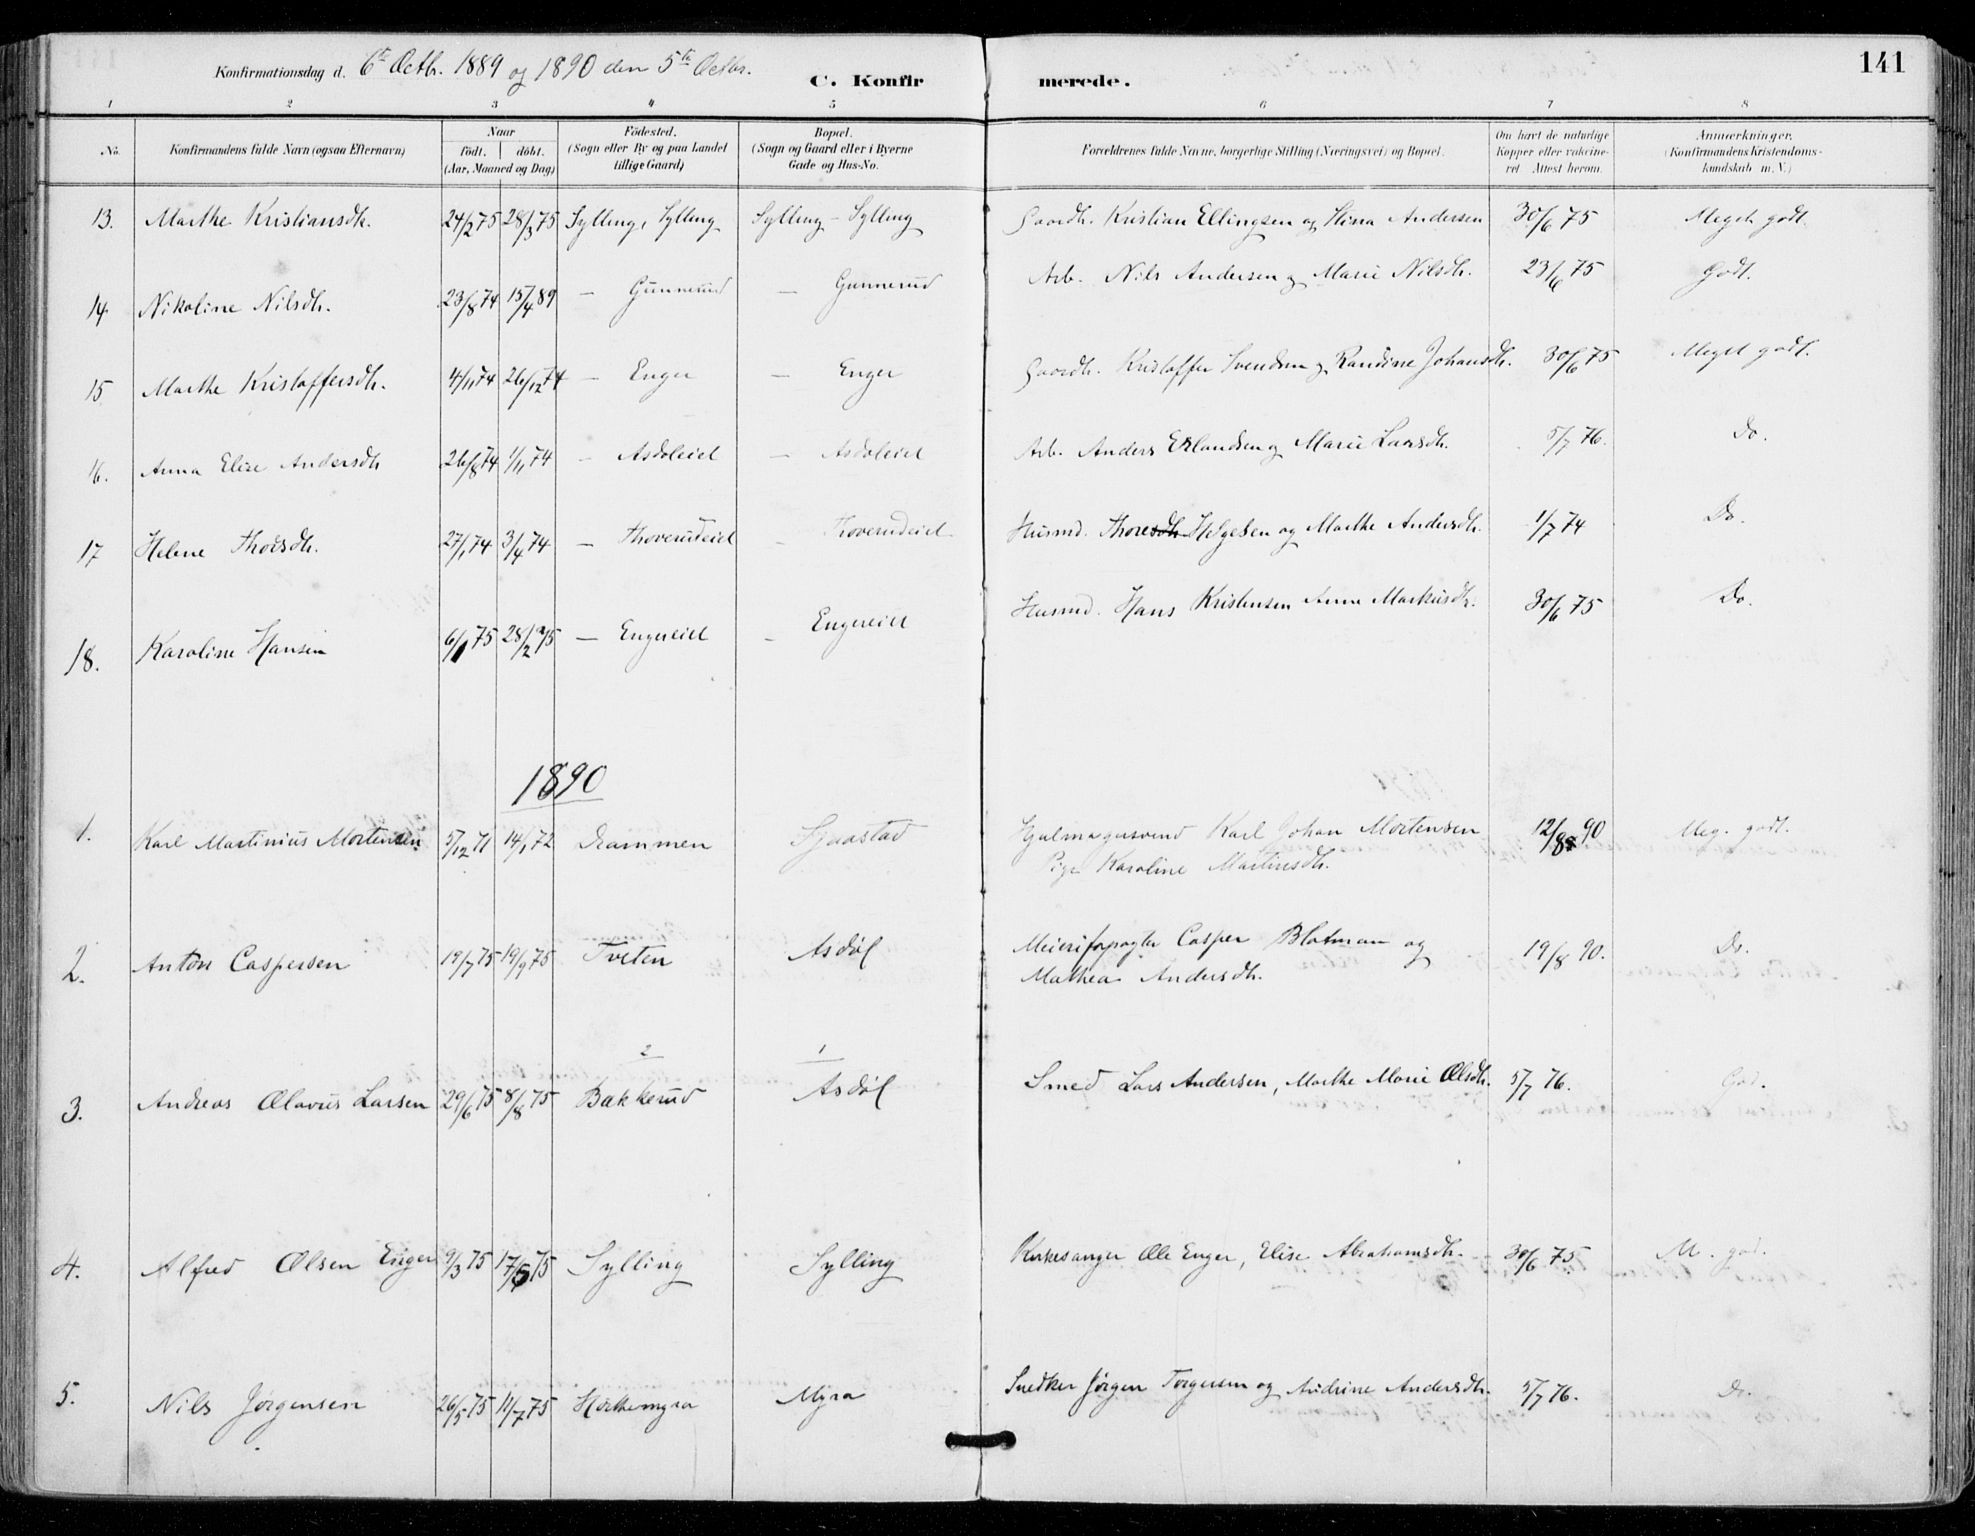 Konfirmationsdag d. 6te Octbr. 1889 og 1890 den 5te Octbr. C. Konfirmerede. 141
1 2 3 4 5 6 7 8
No. Konfirmandens fulde Navn (ogsaa Efternavn) Naar født. døbt. (Aar, Maaned og Dag) Födested. (Sogn eller By og paa Landet tillige Gaard) Bopæl. (Sogn og Gaard eller i Byerne Gade og Hus-No. Forældrenes fulde Navne, borgerlige Stilling (Næringsvei) og Bopæl. Om havt de naturlige Kopper eller vaccineret. Attest herom. Anmærkninger. (Konfirmandens Kristendomskundskab m. V.)
13. Marthe Kristiansdt. 24/2 75 28/3 75 Sylling, Sylling Sylling - Sylling Gaardb. Kristian Ellingsen og Stina Andersen 30/6 75 Meget godt.
14 Nikoline Nilsdt. 23/8 74 15/4 89 — Gunnerud — Gunnerud Arb. Nils Andersen og Marie Nilsdt. 23/6 75 Godt.
15 Marthe Kristoffersdt. 4/11 74 26/12 74 — Enger — Enger Gaardb. Kristoffer Svendsen og Randine Johansdt. 30/6 75 Meget godt.
16. Anna Elise Andersdt 26/8 74 1/11 74 — Asdøleiet — Asdøleiet Arb. Anders Erlandsen og Marie Larsdt. 5/7 76. Do.
17 Helene Thorsdt. 27/1 74 3/4 74 — Thoverudeiet — Thoverudeiet Husmd. Thoresdt Helgesen og Marthe Andersdt. 1/7 74 Do.
18. Karoline Hansen 6/1 75 28/2 75 — Engereiet — Engereiet Husmd. Hans Kristensen Anne Markusdt. 30/6 75 Do.
1890
1. Karl Martinius Mortensen 5/12 71 14/1 72 Drammen Sjaastad Hjulmagersvend Karl Johan Mortensen 12/8 90 Meg. godt.
Pige Karoline Martinsdt.
2. Anton Caspersen 19/7 75 19/9 75 Tveten Asdøl Meieriforpagter Casper Blatman og 19/8 90. Do.
Mathea Andersdt.
2 1
3. Andreas Olavus Larsen 29/6 75 8/8 75 Bakkerud Asdøl Smed Lars Andersen, Marthe Marie Olsdt. 5/7 76. God.
4. Alfred Olsen Enger 9/3 75 17/5 75 Sylling Sylling Kirkesanger Ole Enger, Elise Abrahamsdt. 30/6 75. M. god.
5. Nils Jörgensen 26/5 75 11/7 75 Hørthemyra Myra Snedker Jörgen Torgersen og Andrine Andersdt. 5/7 76. Do.